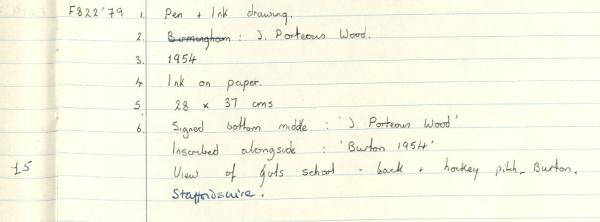 F822'79 1. Pen + Ink drawing.
2. Birmingham : J. Porteous Wood.
3. 1954
4 Ink on paper.
5. 28 × 37 cms
6. Signed bottom middle : 'J. Porteous Wood'
Inscribed alongside : 'Burton 1954'
£5 View of girls school - back + hockey pitch, Burton.
Staffordshire.